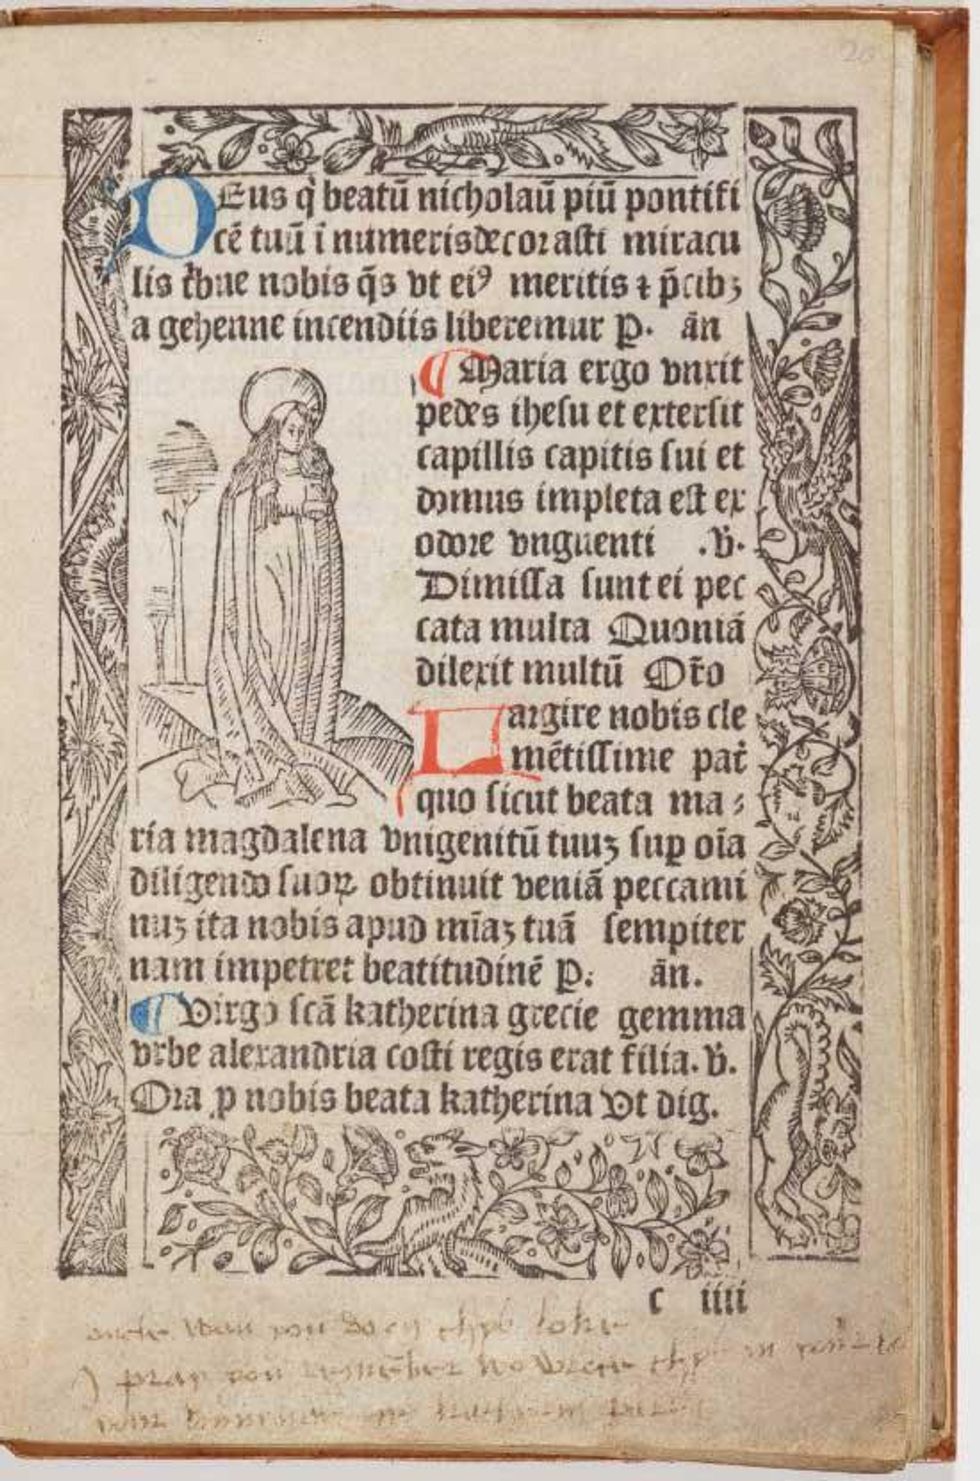 20
DEus q̇ beatū nicholaū piū pontifi
cē tuū ī numerisdecorasti miracu
lis tͥbue nobis q̄s vt eiꝰ meritis ⁊ p̄cibꝫ
a gehenne incendiis liberemur P. ān
¶ Maria ergo vnxit
pedes ihesu et extersit
capillis capitis sui et
domus impleta est ex
odore vnguenti .v̄.
Dimissa sunt ei pec
cata multa Quoniā
dilexit multū Oro̅
Largire nobis cle
mētissime pat̄
quo sicut beata ma⸗
ria magdalena vnigenitū tuuꝫ suꝑ oīa
diligendo suoꝝ obtinuit veniā peccami
nuꝫ ita nobis apud mīaꝫ tuā sempiter
nam impetret beatitudinē P: ān.
¶ Virgo scā katherina grecie gemma
vrbe alexandria costi regis erat filia. v̄.
Ora ꝓ nobis beata katherina Vt dig.
c iiii
when you do on thys loke
I pray you remember who wrete thys in your
your